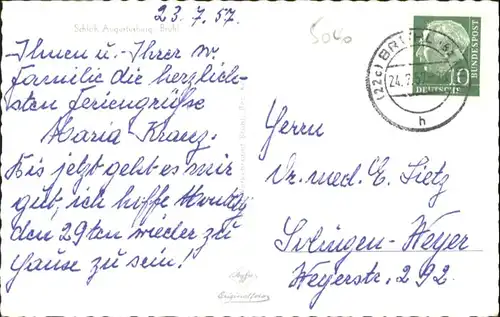 23.7.57.
Schloß Augustusburg, Brühl
5040
Ihnen u. Ihrer w
Familie die herzlich-
sten Feriengrüße
Maria Kranz.
Bis jetzt geht es mir
gut, ich hoffe Montag
den 29ten wieder zu
Hause zu sein!
(22c) BRÜHL
24.7.57
h
10
DEUTSCHE
BUNDESPOST
Herrn
Dr. med. E. Tietz
Solingen-Weyer
Weyerstr. 292.
Originalfoto